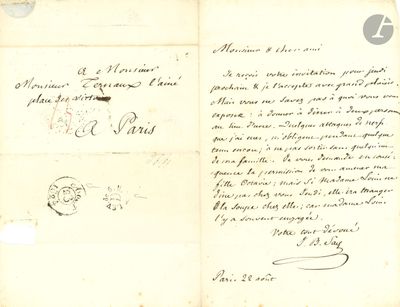 A Monsieur
Monsieur Ternaux l'ainé
place des Victoires
A Paris
Monsieur & cher ami
Je reçois votre invitation pour jeudi
prochain & je l'accepte avec grand plaisir.
Mais vous ne savez pas à quoi vous vous
exposez : à donner à dîner à deux personnes
au lieu d'une. Quelques attaques de nerfs
que j'ai eues, m'obligent pendant quelque
tems encore, à ne pas sortir sans quelqu'un
de ma famille. Je vous demande en consé-
quence la permission de vous amener ma
fille Octavie ; mais si Madame Louis ne
dîne pas chez vous Jeudi, elle ira manger
la soupe chez elle ; car madame Louis
l'y a souvent engagée.
Votre tout dévoué
J. B. Say
Paris 22 août